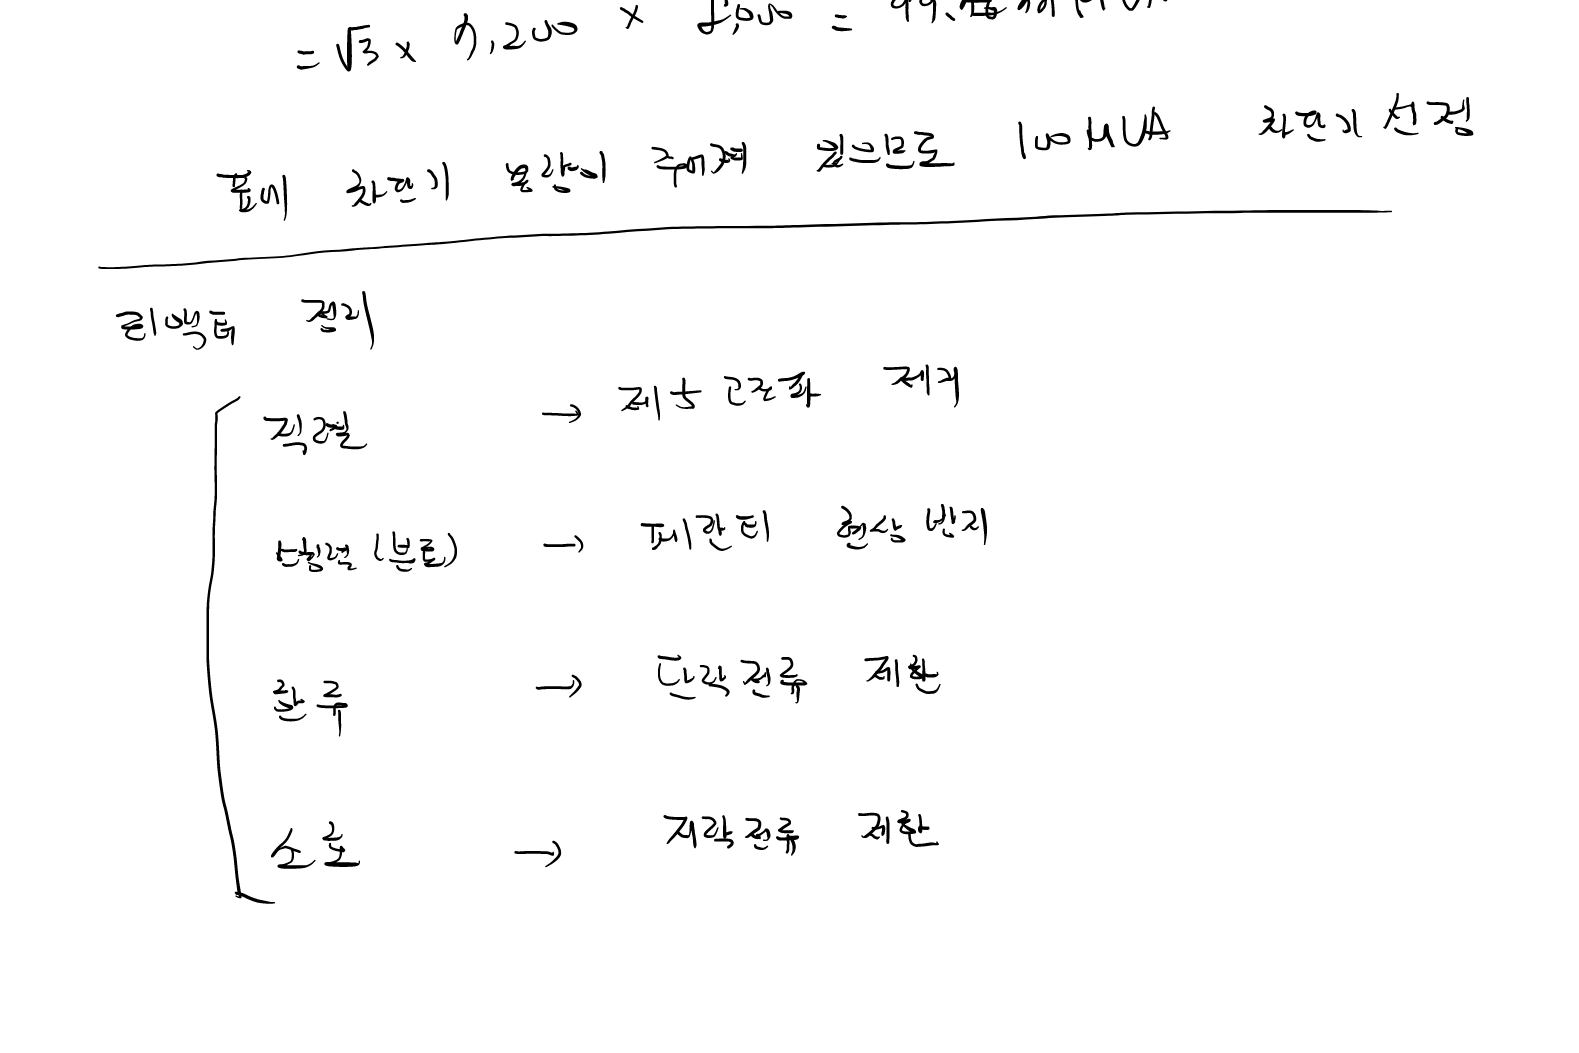 = √3 × 7,200 × 8,000 =
표에 차단기 용량이 주어져 있으므로 100 MVA 차단기 선정
리액터 정리
직렬 → 제5고조파 제거
병렬 (분로) → 페란티 현상 방지
한류 → 단락전류 제한
소호 → 지락전류 제한